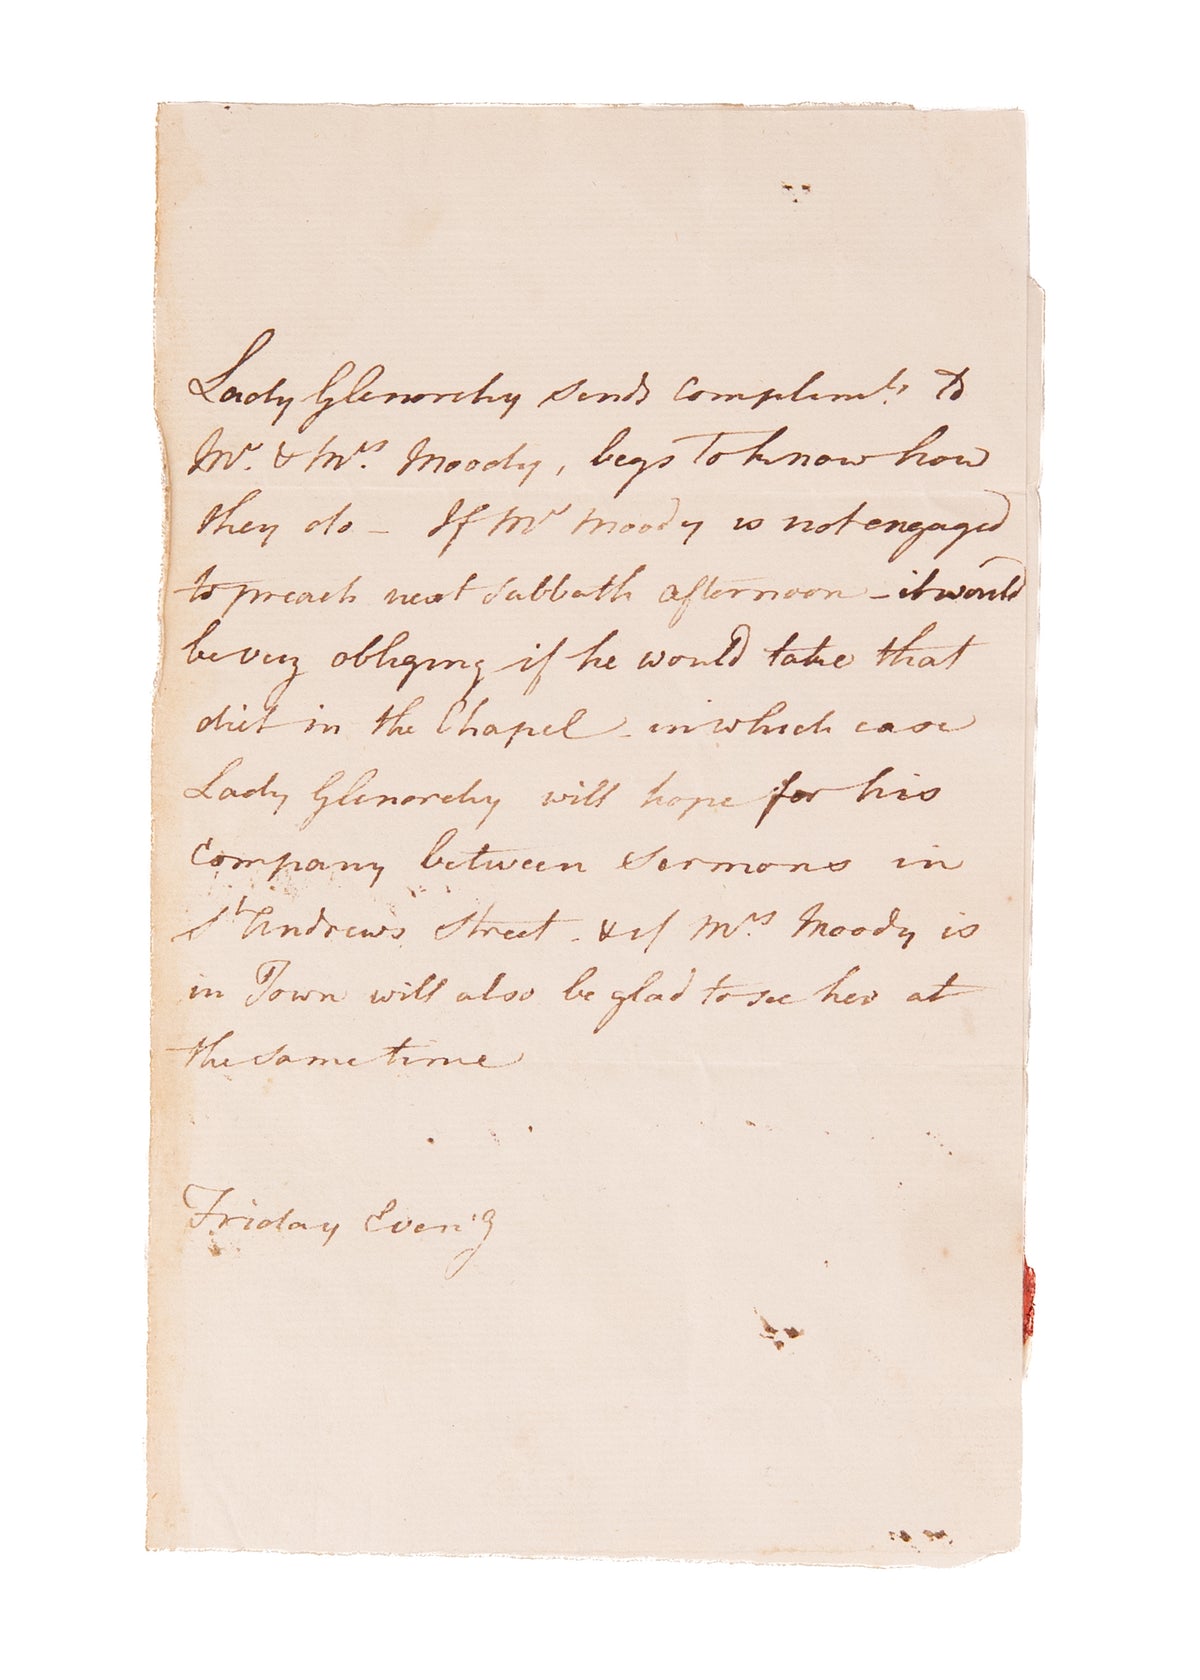 Lady Glenorchy sends complimts. to
Mr. & Mrs. Moody, begs to know how
they do - If Mr Moody is not engaged
to preach next Sabbath afternoon - it would
be very obliging if he would take that
diet in the Chapel - in which case
Lady Glenorchy will hope for his
Company between Sermons in
St Andrews Street - & if Mrs Moody is
in Town will also be glad to see her at
the same time
Friday Even'g